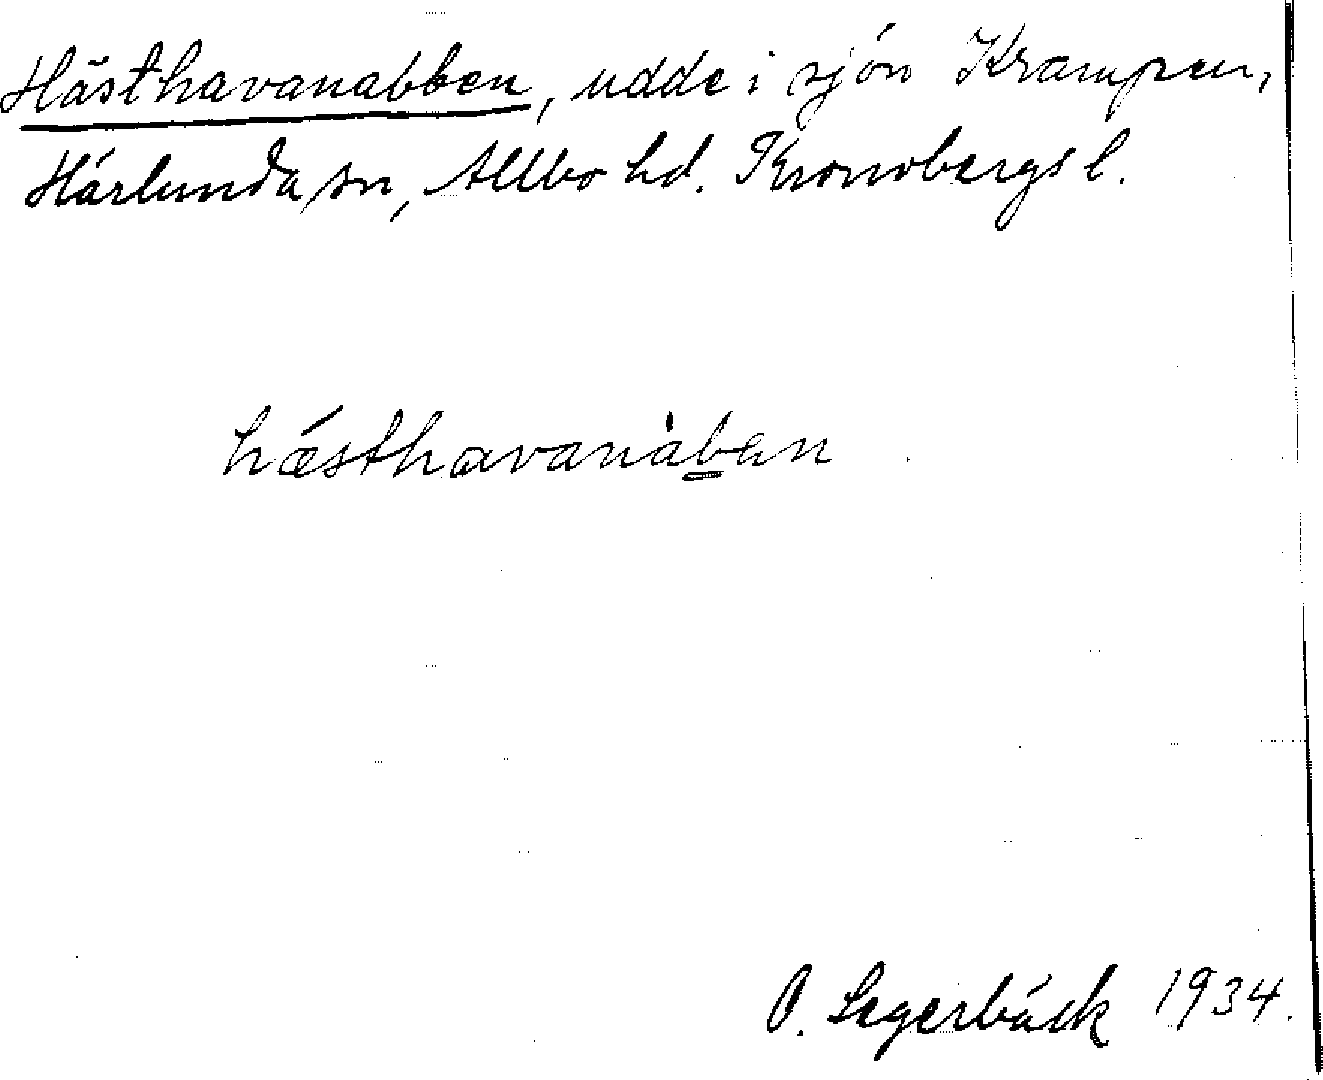 Hästhavanabben, udde i sjön Krampen,
Härlunda sn, Allbo hd. Kronobergs l.
hæ´sthavanàb̳en
O. Segerbäck 1934.